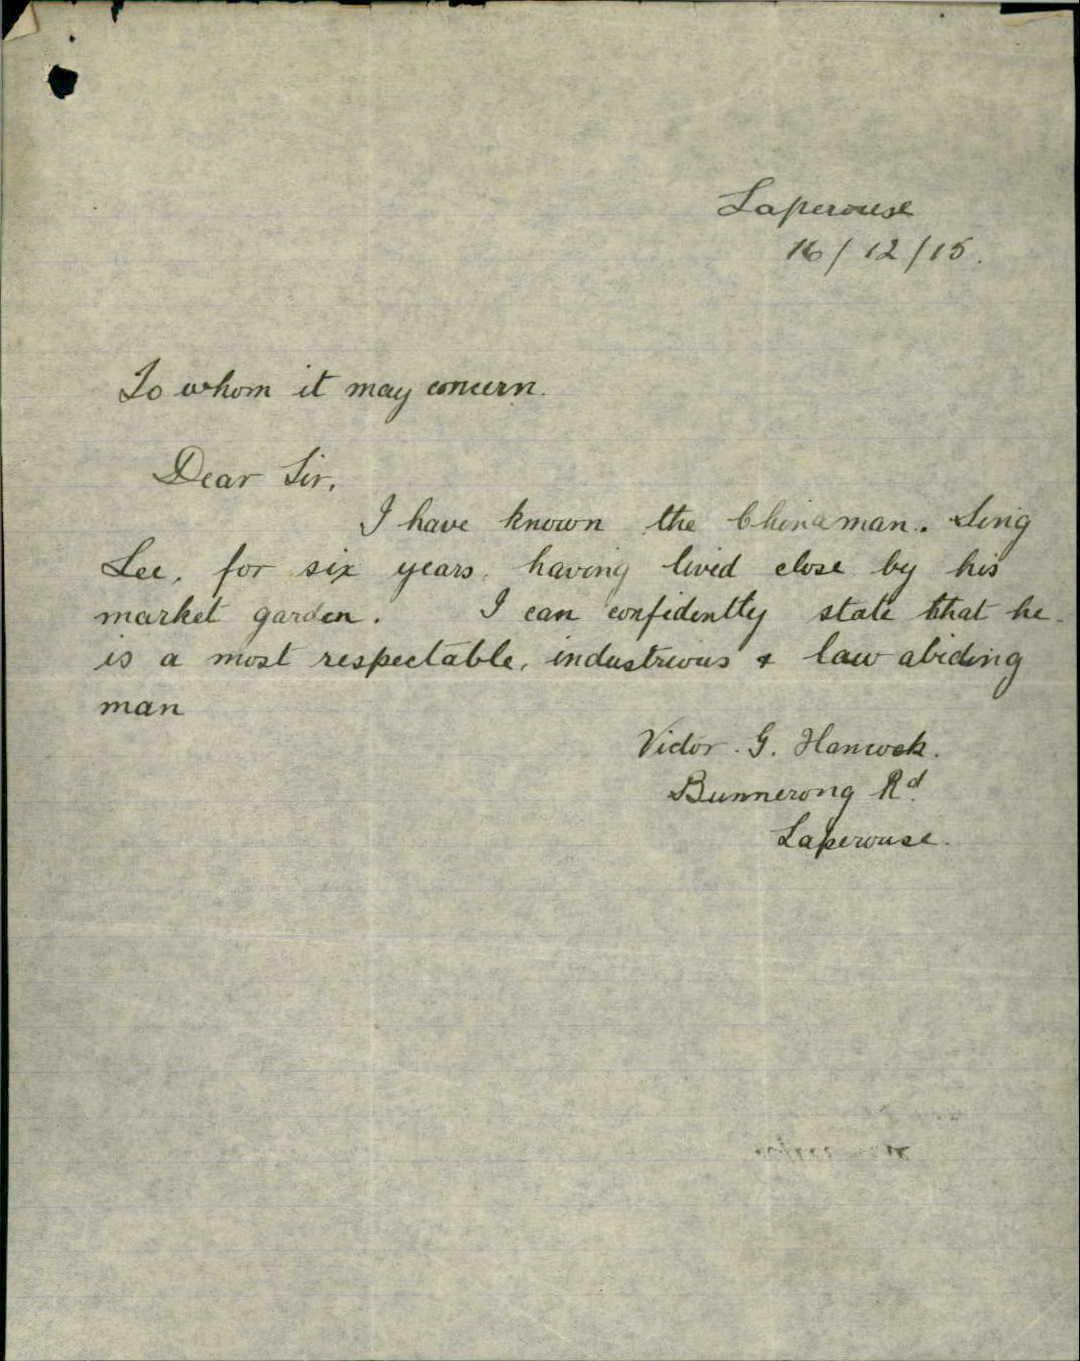 Laperouse
16/12/15.
To whom it may concern.
Dear Sir,
I have known the Chinaman. Sing
Lee, for six years, having lived close by his
market garden. I can confidently state that he
is a most respectable, industrious & law abiding
man
Victor. G. Hancock.
Bunnerong Rd.
Laperouse.